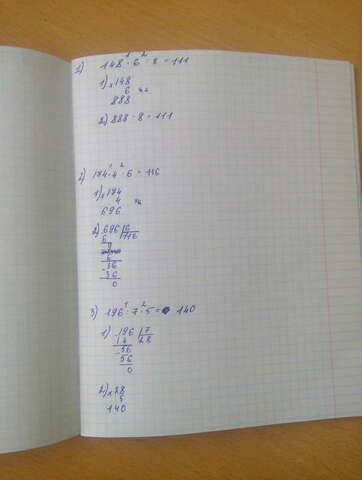 1 2
1) 148 · 6 : 8 = 111
1) × 148
6 42
888
2) 888 : 8 = 111
1 2
2) 174 · 4 : 6 = 116
1) × 174
4
696
2) 696 | 6
6 116
9
6
36
36
0
1 2
3) 196 : 7 · 5 = 140
1) 196 | 7
14 28
56
56
0
2) × 28
5
140